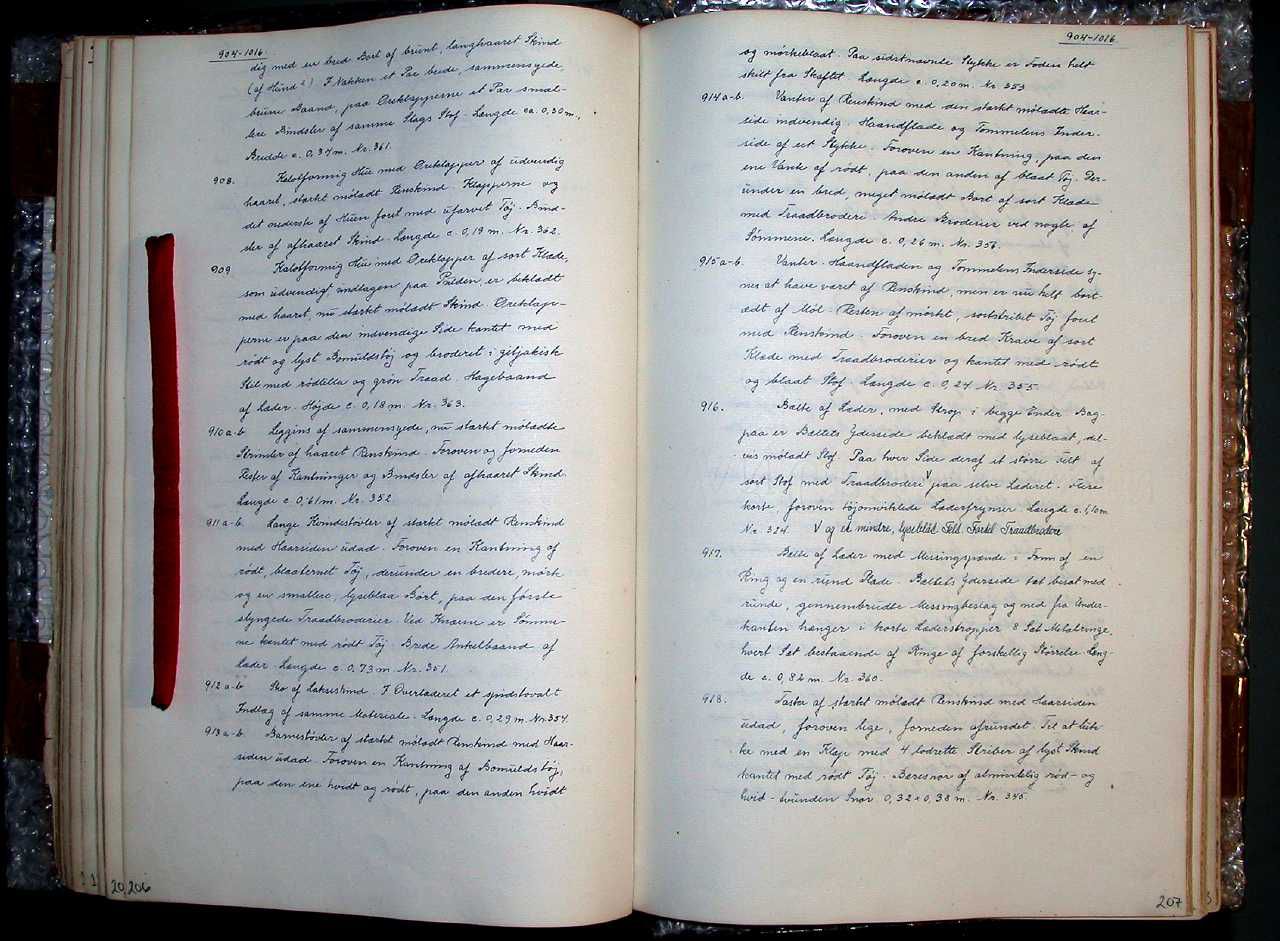 904-1016.
dig med en bred Bort af brunt, langhaaret Skind
(af Hund?). I Nakken et Par brede, sammensyede,
brune Baand, paa Øreklapperne et Par smal-
lere Bindsler af samme Slags Stof. Længde ca. 0,30 m.,
Bredde c. 0,37 m. Nr. 361.
908. Kalotformig Hue med Øreklapper af udvendig
haaret, stærkt mølædt Renskind. Klapperne og
det nederste af Huen foret med ufarvet Tøj. Bind-
sler af afhaaret Skind. Længde c. 0,19 m. Nr. 362.
909 Kalotformig Hue med Øreklapper af sort Klæde,
som udvendigt, undtagen paa Pulden, er beklædt
med haaret, nu stærkt mølædt Skind. Øreklap-
perne er paa den indvendige Side kantet med
rødt og lyst Bomuldstøj og broderet i giljakisk
Stil med rødlilla og grøn Traad. Hagebaand
af Læder. Højde c. 0,18 m. Nr. 363.
910 a-b Leggins af sammensyede, nu stærkt mølædte
Strimler af haaret Renskind. Foroven og forneden
Rester af Kantninger og Bindsler af afhaaret Skind.
Længde c. 0,61 m. Nr. 352.
911 a-b. Lange Kvindestøvler af stærkt mølædt Renskind
med Haarsiden udad. Foroven en Kantning af
rødt, blaaternet Tøj, derunder en bredere, mørk
og en smallere, lyseblaa Bort, paa den første
slyngede Traadbroderier. Ved Knæene er Sømme-
ne kantet med rødt Tøj. Brede Ankelbaand af
Læder. Længde c. 0,73 m. Nr. 351.
912 a-b Sko af Lakseskind. I Overlæderet et spidsovalt
Indlæg af samme Materiale. Længde c. 0,29 m. Nr. 354.
913 a-b. Barnestøvler af stærkt mølædt Renskind med Haar-
siden udad. Foroven en Kantning af Bomuldstøj,
paa den ene hvidt og rødt, paa den anden hvidt
20,206
904-1016.
og mørkeblaat. Paa sidstnævnte Stykke er Foden helt
skilt fra Skaftet. Længde c. 0,20 m. Nr. 353
914 a-b. Vanter af Renskind med den stærkt mølædte Haar-
side indvendig. Haandflade og Tommelens Inder-
side af eet Stykke. Foroven en Kantning, paa den
ene Vante af rødt, paa den anden af blaat Tøj. Der-
under en bred, meget mølædt Bort af sort Klæde
med Traadbroderi. Andre Broderier ved nogle af
Sømmene. Længde c. 0,26 m. Nr. 356.
915 a-b. Vanter. Haandfladen og Tommelens Inderside sy-
nes at have været af Renskind, men er nu helt bort
ædt af Møl. Resten af mørkt, sortstribet Tøj foret
med Renskind. Foroven en bred Krave af sort
Klæde med Traadbroderier og kantet med rødt
og blaat Stof. Længde c. 0,24 Nr. 355.
916. Bælte af Læder, med Strop i begge Ender. Bag-
paa er Bæltets Yderside beklædt med lyseblaat, del-
vis mølædt Stof. Paa hver Side deraf et større Felt af
sort Stof med Traadbroderi V paa selve Læderet. Flere
korte, foroven tøjomviklede Læderfrynser. Længde c. 1,10 m
Nr. 324. V og et mindre, lyseblåt Felt. Farvel Traadbroderi
917. Bælte af Læder med Messingspænde i Form af en
Ring og en rund Plade. Bæltets Yderside tæt besat med
runde, gennembrudte Messingbeslag og ned fra Under-
kanten hænger i korte Læderstropper 8 Sæt Metalringe,
hvert Sæt bestaaende af Ringe af forskellig Størrelse. Læng-
de c. 0,82 m. Nr. 360.
918. Taske af stærkt mølædt Renskind med Haarsiden
udad, foroven lige, forneden afrundet. Til at luk-
ke med en Klap med 4 lodrette Striber af lyst Skind
kantet med rødt Tøj. Bæresnor af almindelig rød- og
hvid-tvunden Snor. 0,32 x 0,38 m. Nr. 345.
207